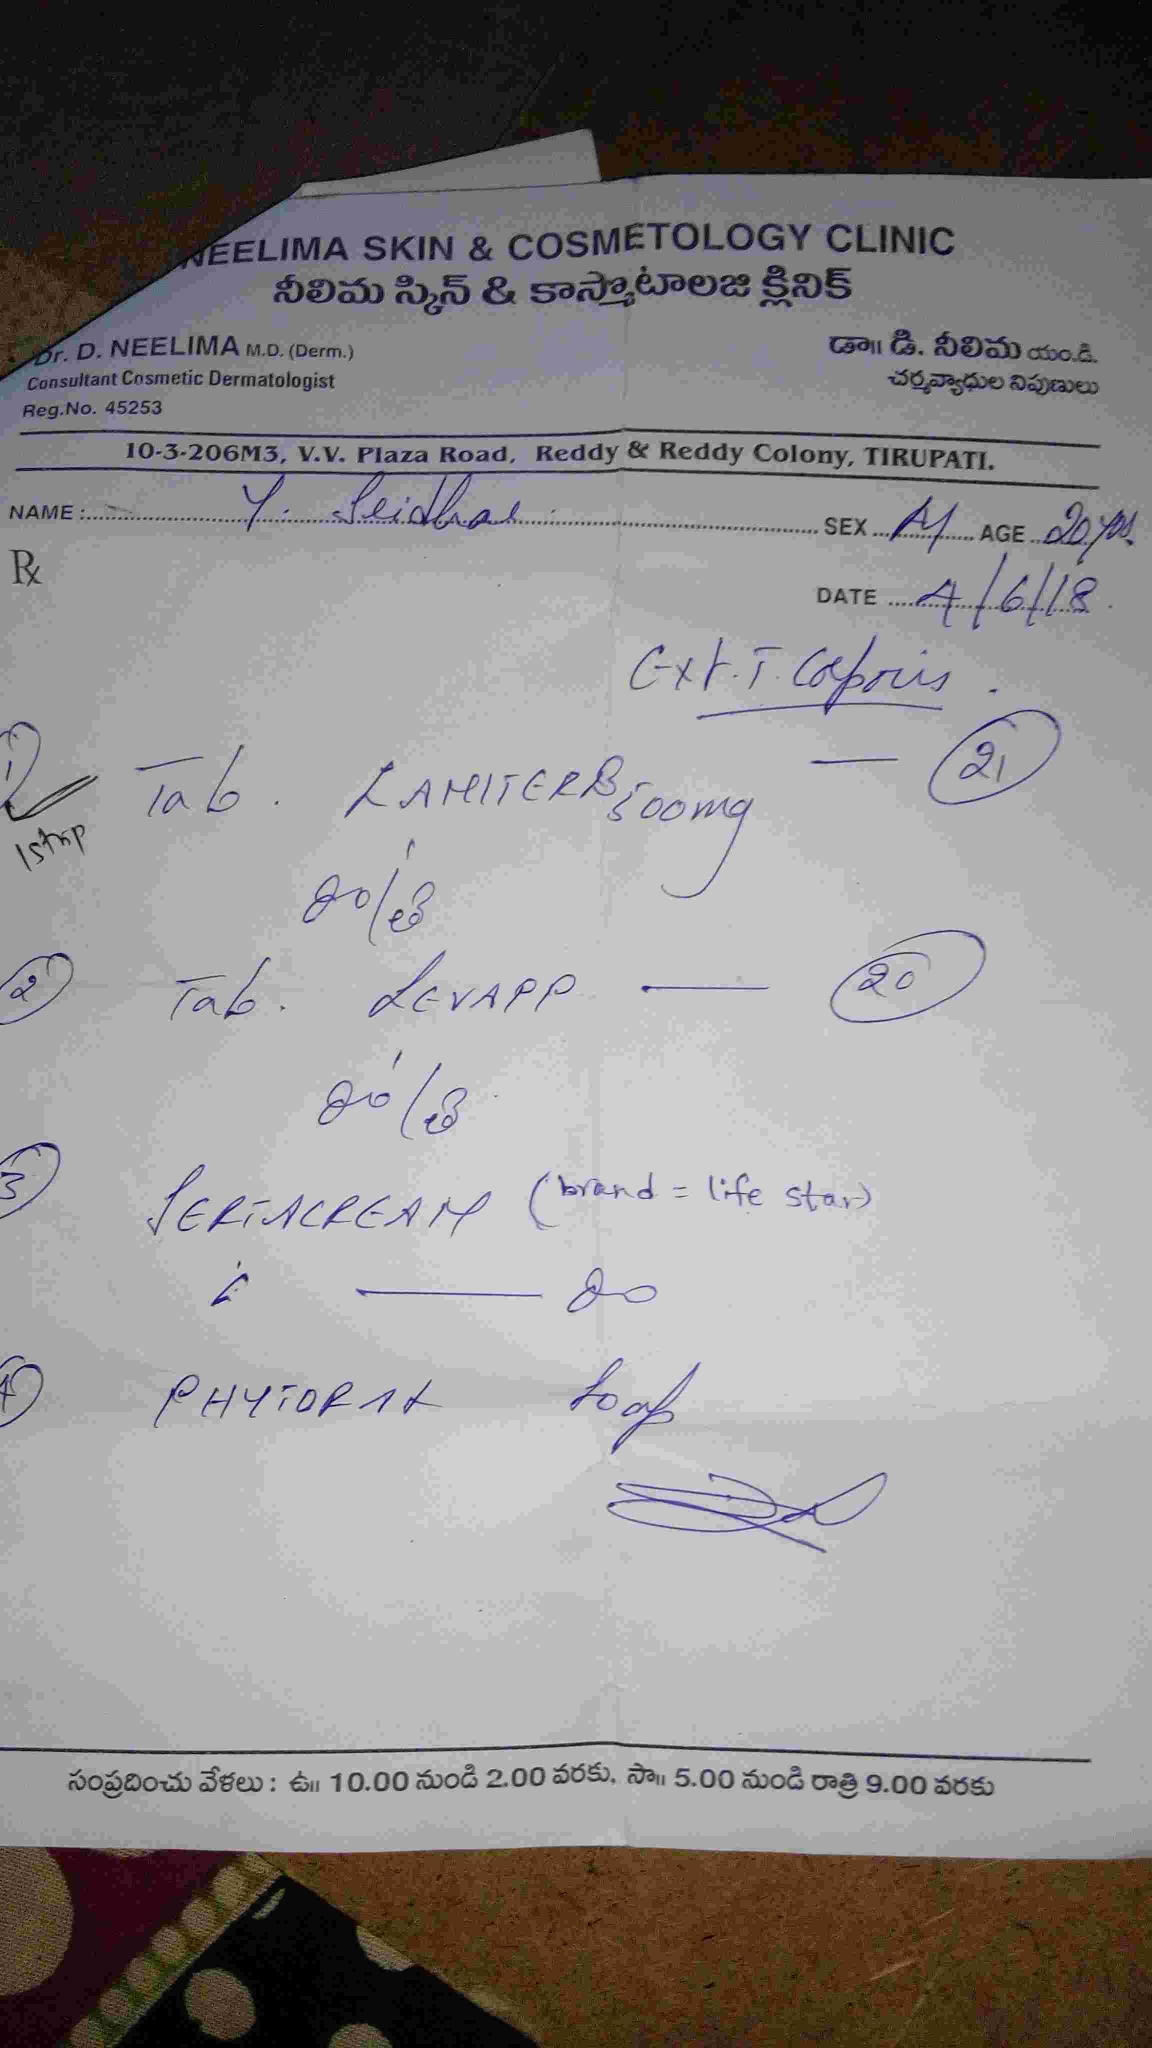 NEELIMA SKIN & COSMETOLOGY CLINIC
నీలిమ స్కిన్ & కాస్మొటాలజి క్లినిక్
Dr. D. NEELIMA M.D. (Derm.)
Consultant Cosmetic Dermatologist
Reg.No. 45253
డా॥ డి. నీలిమ యం.డి.
చర్మవ్యాధుల నిపుణులు
10-3-206M3, V.V. Plaza Road, Reddy & Reddy Colony, TIRUPATI.
NAME : Y. SEX M AGE 20 yrs.
℞
DATE 4/6/18.
Ext. T.
1 Tab. LAMITERB 500mg — 21
1 strp
2 Tab. LEVAPP — 20
3 SERTACREAM (brand = life star)
4 Soap
సంప్రదించు వేళలు : ఉ॥ 10.00 నుండి 2.00 వరకు, సా॥ 5.00 నుండి రాత్రి 9.00 వరకు